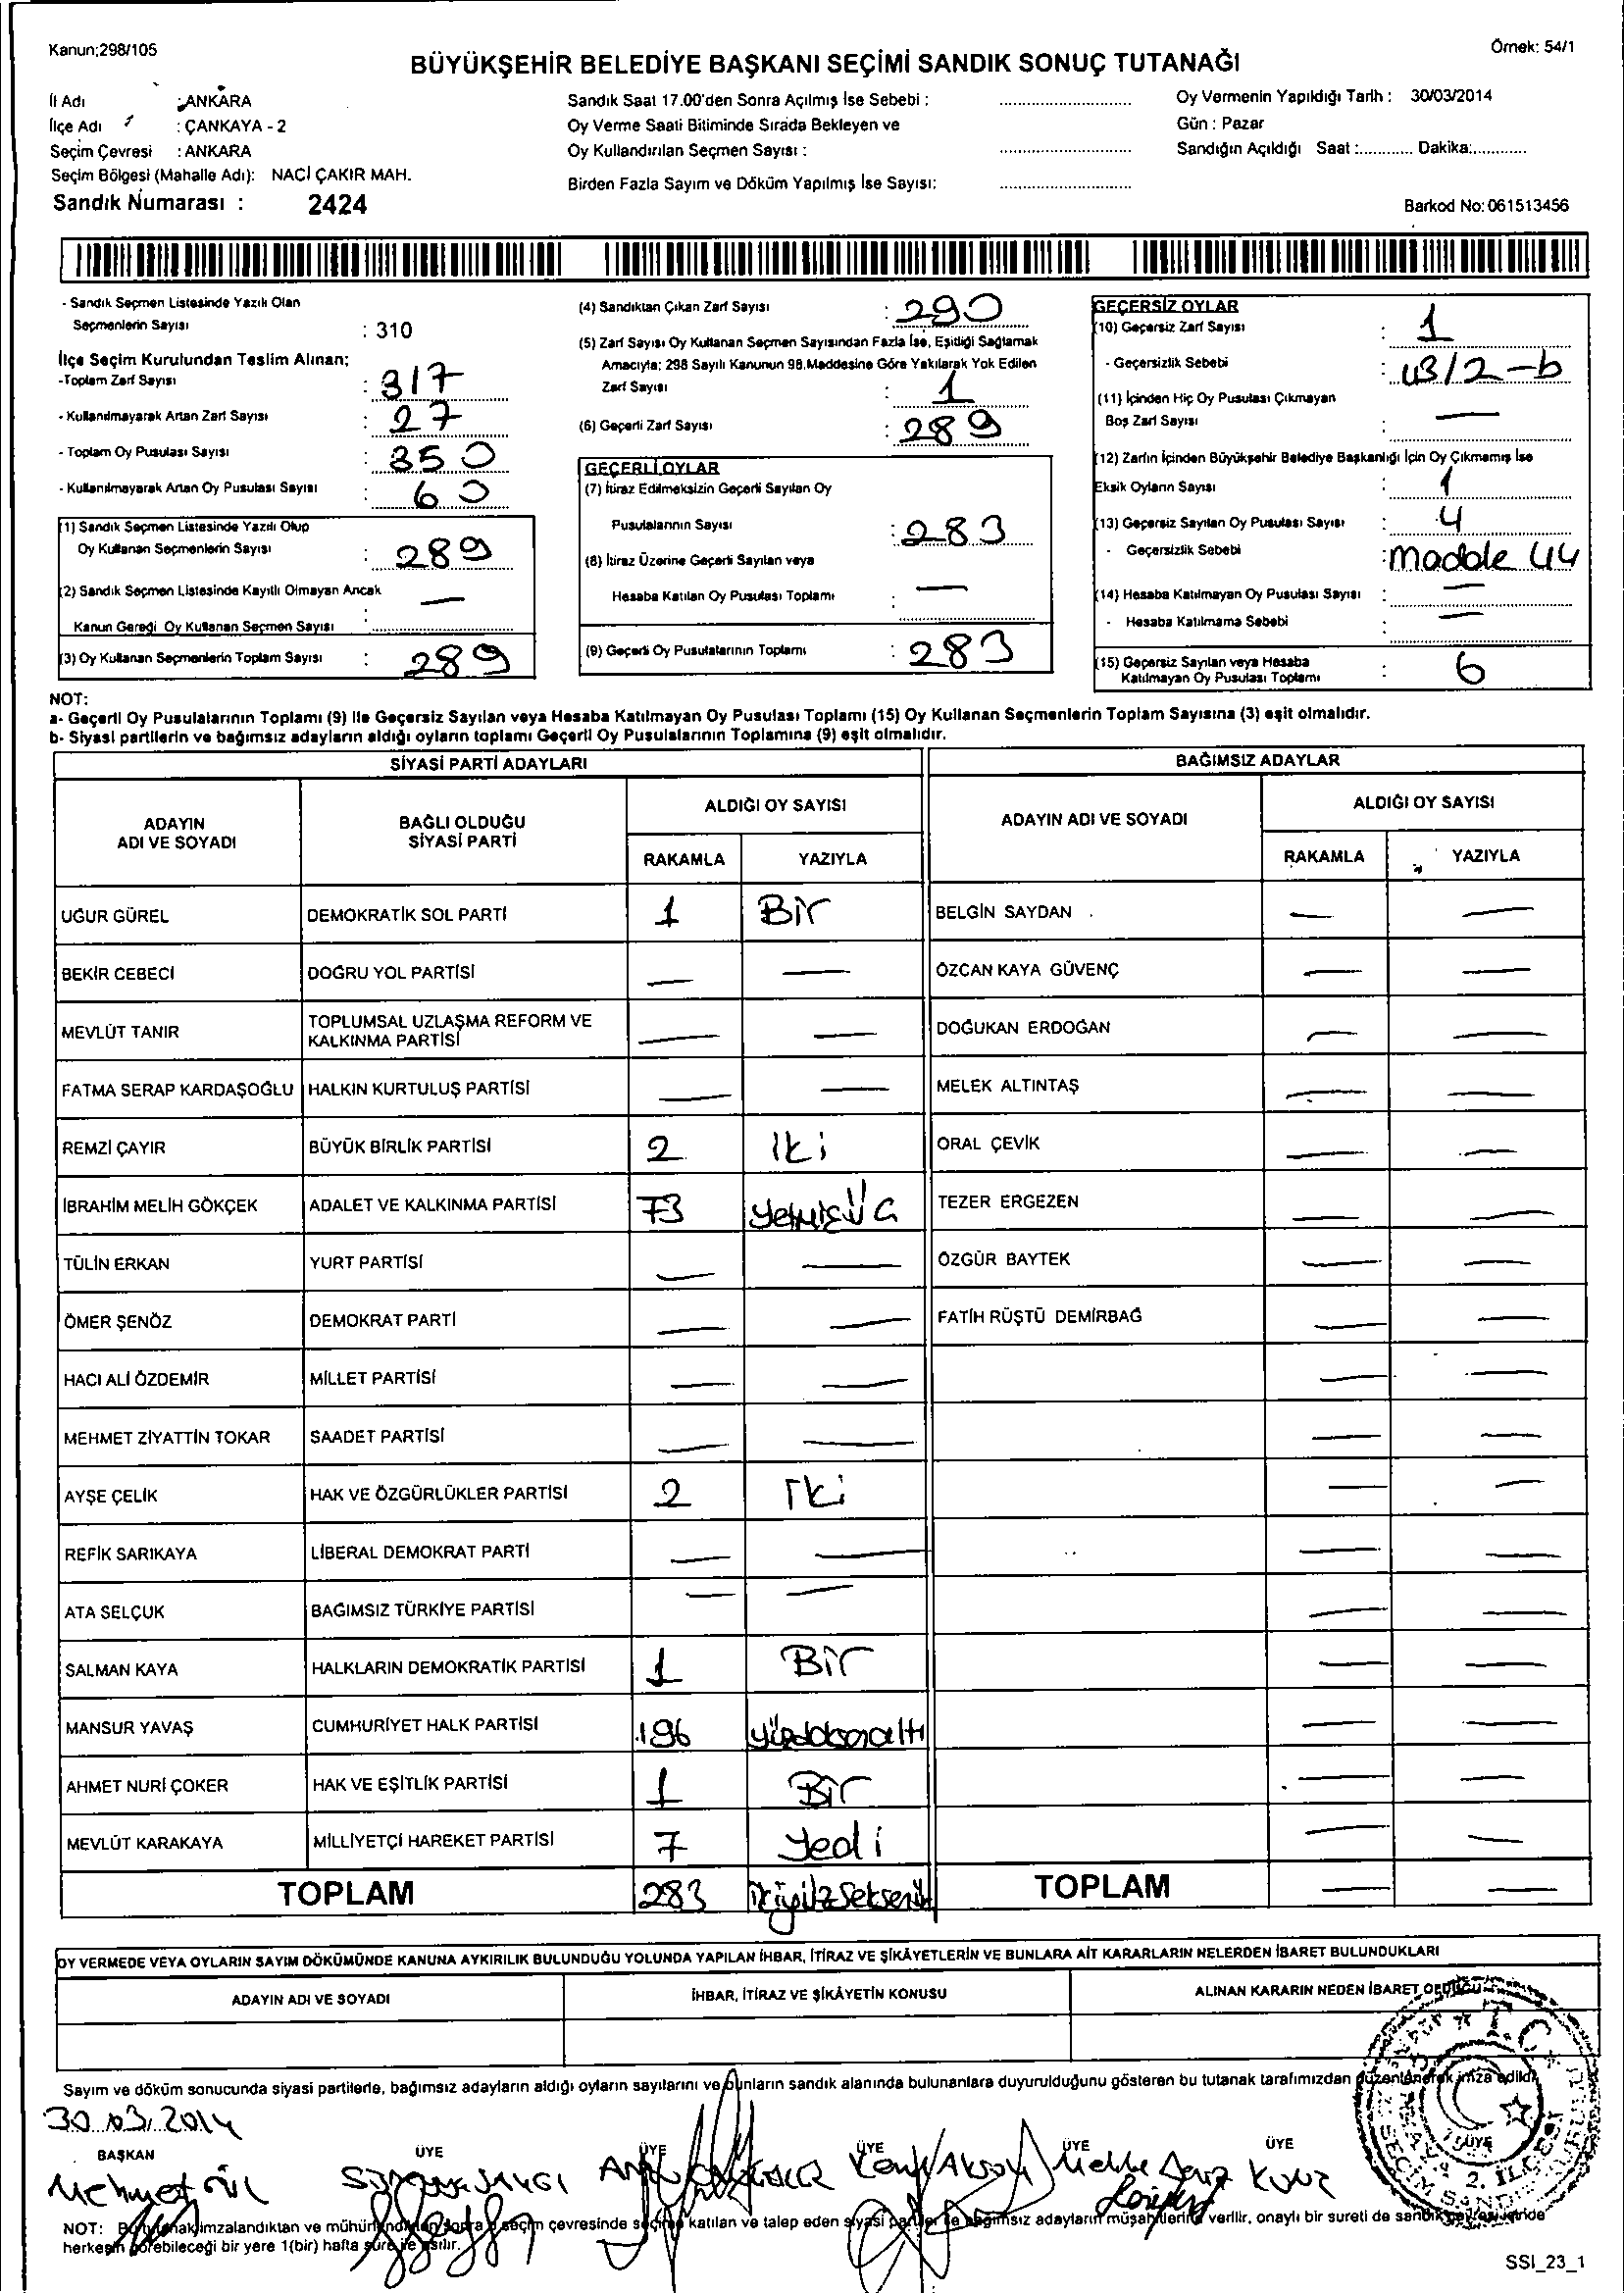 Kanun;298/105
Örnek: 54/1
BÜYÜKŞEHİR BELEDİYE BAŞKANI SEÇİMİ SANDIK SONUÇ TUTANAĞI
İl Adı : ANKARA
İlçe Adı : ÇANKAYA - 2
Seçim Çevresi : ANKARA
Seçim Bölgesi (Mahalle Adı): NACİ ÇAKIR MAH.
Sandık Numarası : 2424
Sandık Saat 17.00'den Sonra Açılmış İse Sebebi :
Oy Verme Saati Bitiminde Sırada Bekleyen ve
Oy Kullandırılan Seçmen Sayısı :
Birden Fazla Sayım ve Döküm Yapılmış İse Sayısı:
Oy Vermenin Yapıldığı Tarih : 30/03/2014
Gün : Pazar
Sandığın Açıldığı Saat :............ Dakika:............
Barkod No: 061513456
- Sandık Seçmen Listesinde Yazılı Olan
Seçmenlerin Sayısı : 310
İlçe Seçim Kurulundan Teslim Alınan;
-Toplam Zarf Sayısı : 317
- Kullanılmayarak Artan Zarf Sayısı : 27
- Toplam Oy Pusulası Sayısı : 350
- Kullanılmayarak Artan Oy Pusulası Sayısı : 60
(1) Sandık Seçmen Listesinde Yazılı Olup
Oy Kullanan Seçmenlerin Sayısı : 289
(2) Sandık Seçmen Listesinde Kayıtlı Olmayan Ancak
Kanun Gereği Oy Kullanan Seçmen Sayısı : —
(3) Oy Kullanan Seçmenlerin Toplam Sayısı : 289
(4) Sandıktan Çıkan Zarf Sayısı : 290
(5) Zarf Sayısı Oy Kullanan Seçmen Sayısından Fazla İse, Eşitliği Sağlamak
Amacıyla; 298 Sayılı Kanunun 98.Maddesine Göre Yakılarak Yok Edilen
Zarf Sayısı : 1
(6) Geçerli Zarf Sayısı : 289
GEÇERLİ OYLAR
(7) İtiraz Edilmeksizin Geçerli Sayılan Oy
Pusulalarının Sayısı : 283
(8) İtiraz Üzerine Geçerli Sayılan veya
Hesaba Katılan Oy Pusulası Toplamı : —
(9) Geçerli Oy Pusulalarının Toplamı : 283
GEÇERSİZ OYLAR
(10) Geçersiz Zarf Sayısı : 1
- Geçersizlik Sebebi : 43/2-b
(11) İçinden Hiç Oy Pusulası Çıkmayan
Boş Zarf Sayısı : —
(12) Zarfın İçinden Büyükşehir Belediye Başkanlığı İçin Oy Çıkmamış İse
Eksik Oyların Sayısı : 1
(13) Geçersiz Sayılan Oy Pusulası Sayısı : 4
- Geçersizlik Sebebi : madde 44
(14) Hesaba Katılmayan Oy Pusulası Sayısı : —
- Hesaba Katılmama Sebebi : —
(15) Geçersiz Sayılan veya Hesaba
Katılmayan Oy Pusulası Toplamı : 6
NOT:
a- Geçerli Oy Pusulalarının Toplamı (9) ile Geçersiz Sayılan veya Hesaba Katılmayan Oy Pusulası Toplamı (15) Oy Kullanan Seçmenlerin Toplam Sayısına (3) eşit olmalıdır.
b- Siyasi partilerin ve bağımsız adayların aldığı oyların toplamı Geçerli Oy Pusulalarının Toplamına (9) eşit olmalıdır.
SİYASİ PARTİ ADAYLARI
ADAYIN ADI VE SOYADI
BAĞLI OLDUĞU SİYASİ PARTİ
ALDIĞI OY SAYISI
RAKAMLA YAZIYLA
UĞUR GÜREL DEMOKRATİK SOL PARTİ 1 Bir
BEKİR CEBECİ DOĞRU YOL PARTİSİ — —
MEVLÜT TANIR TOPLUMSAL UZLAŞMA REFORM VE KALKINMA PARTİSİ — —
FATMA SERAP KARDAŞOĞLU HALKIN KURTULUŞ PARTİSİ — —
REMZİ ÇAYIR BÜYÜK BİRLİK PARTİSİ 2 İki
İBRAHİM MELİH GÖKÇEK ADALET VE KALKINMA PARTİSİ 73
TÜLİN ERKAN YURT PARTİSİ — —
ÖMER ŞENÖZ DEMOKRAT PARTİ — —
HACI ALİ ÖZDEMİR MİLLET PARTİSİ — —
MEHMET ZİYATTİN TOKAR SAADET PARTİSİ — —
AYŞE ÇELİK HAK VE ÖZGÜRLÜKLER PARTİSİ 2 İki
REFİK SARIKAYA LİBERAL DEMOKRAT PARTİ — —
ATA SELÇUK BAĞIMSIZ TÜRKİYE PARTİSİ — —
SALMAN KAYA HALKLARIN DEMOKRATİK PARTİSİ 1 Bir
MANSUR YAVAŞ CUMHURİYET HALK PARTİSİ 196
AHMET NURİ ÇOKER HAK VE EŞİTLİK PARTİSİ 1 Bir
MEVLÜT KARAKAYA MİLLİYETÇİ HAREKET PARTİSİ 7 Yedi
TOPLAM 283
BAĞIMSIZ ADAYLAR
ADAYIN ADI VE SOYADI
ALDIĞI OY SAYISI
RAKAMLA YAZIYLA
BELGİN SAYDAN — —
ÖZCAN KAYA GÜVENÇ — —
DOĞUKAN ERDOĞAN — —
MELEK ALTINTAŞ — —
ORAL ÇEVİK — —
TEZER ERGEZEN — —
ÖZGÜR BAYTEK — —
FATİH RÜŞTÜ DEMİRBAĞ — —
TOPLAM — —
OY VERMEDE VEYA OYLARIN SAYIM DÖKÜMÜNDE KANUNA AYKIRILIK BULUNDUĞU YOLUNDA YAPILAN İHBAR, İTİRAZ VE ŞİKÂYETLERİN VE BUNLARA AİT KARARLARIN NELERDEN İBARET BULUNDUKLARI
ADAYIN ADI VE SOYADI
İHBAR, İTİRAZ VE ŞİKÂYETİN KONUSU
ALINAN KARARIN NEDEN İBARET OLDUĞU
Sayım ve döküm sonucunda siyasi partilerle, bağımsız adayların aldığı oyların sayılarını ve bunların sandık alanında bulunanlara duyurulduğunu gösteren bu tutanak tarafımızdan düzenlenerek imza edildi.
30.03.2014
BAŞKAN ÜYE ÜYE ÜYE ÜYE ÜYE ÜYE
Mehmet
NOT: Bu tutanak imzalandıktan ve mühürlendikten sonra seçim çevresinde seçime katılan ve talep eden siyasi partiler ile bağımsız adayların müşahitlerine verilir, onaylı bir sureti de sandık çevresi içinde
herkesin görebileceği bir yere 1(bir) hafta süre ile asılır.
SSI_23_1